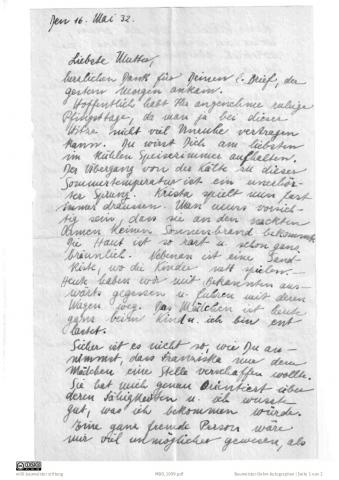 Den 16. Mai 32.
Liebste Mutter,
herzlichen Dank für Deinen l. Brief, der
gestern Morgen ankam.
Hoffentlich habt Ihr angenehme ruhige
Pfingsttage, da man ja bei dieser
Hitze nicht viel Unruhe vertragen
kann. Du wirst Dich am liebsten
im kühlen Speisezimmer aufhalten.
Der Übergang von der Kälte zu dieser
Sommertemperatur ist ein unerhör-
ter Sprung. Krista spielt nun fast
immer draussen. Man muss vorsich-
tig sein, dass sie an den nackten
Armen keinen Sonnenbrand bekommt.
Die Haut ist so zart u. schon ganz
bräunlich. Nebenan ist eine Sand-
kiste, wo die Kinder nett spielen.-
Heute haben wir mit Bekannten aus-
wärts gegessen u. fuhren mit deren
Wagen. Das Mädchen ist heute
ganz beim Kind u. ich bin ent-
lastet.
Sicher ist es nicht so, wie Du an-
nimmst, dass Franziska nur dem
Mädchen eine Stelle verschaffen wollte.
Sie hat mich genau orientiert über
deren Fähigkeiten u. ich wusste
gut, was ich bekommen würde.
Eine ganz fremde Person wäre
mir viel unmöglicher gewesen, als
willi baumeister stiftung
Baumeister-Behn Autographen | Seite 1 von 2